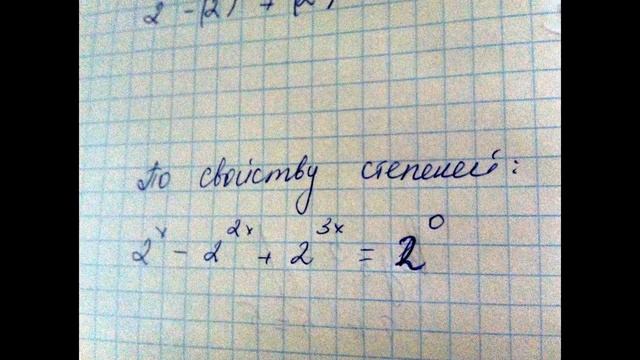 2 - (2) + (2)
По свойству степеней:
2ˣ - 2²ˣ + 2³ˣ = 2⁰